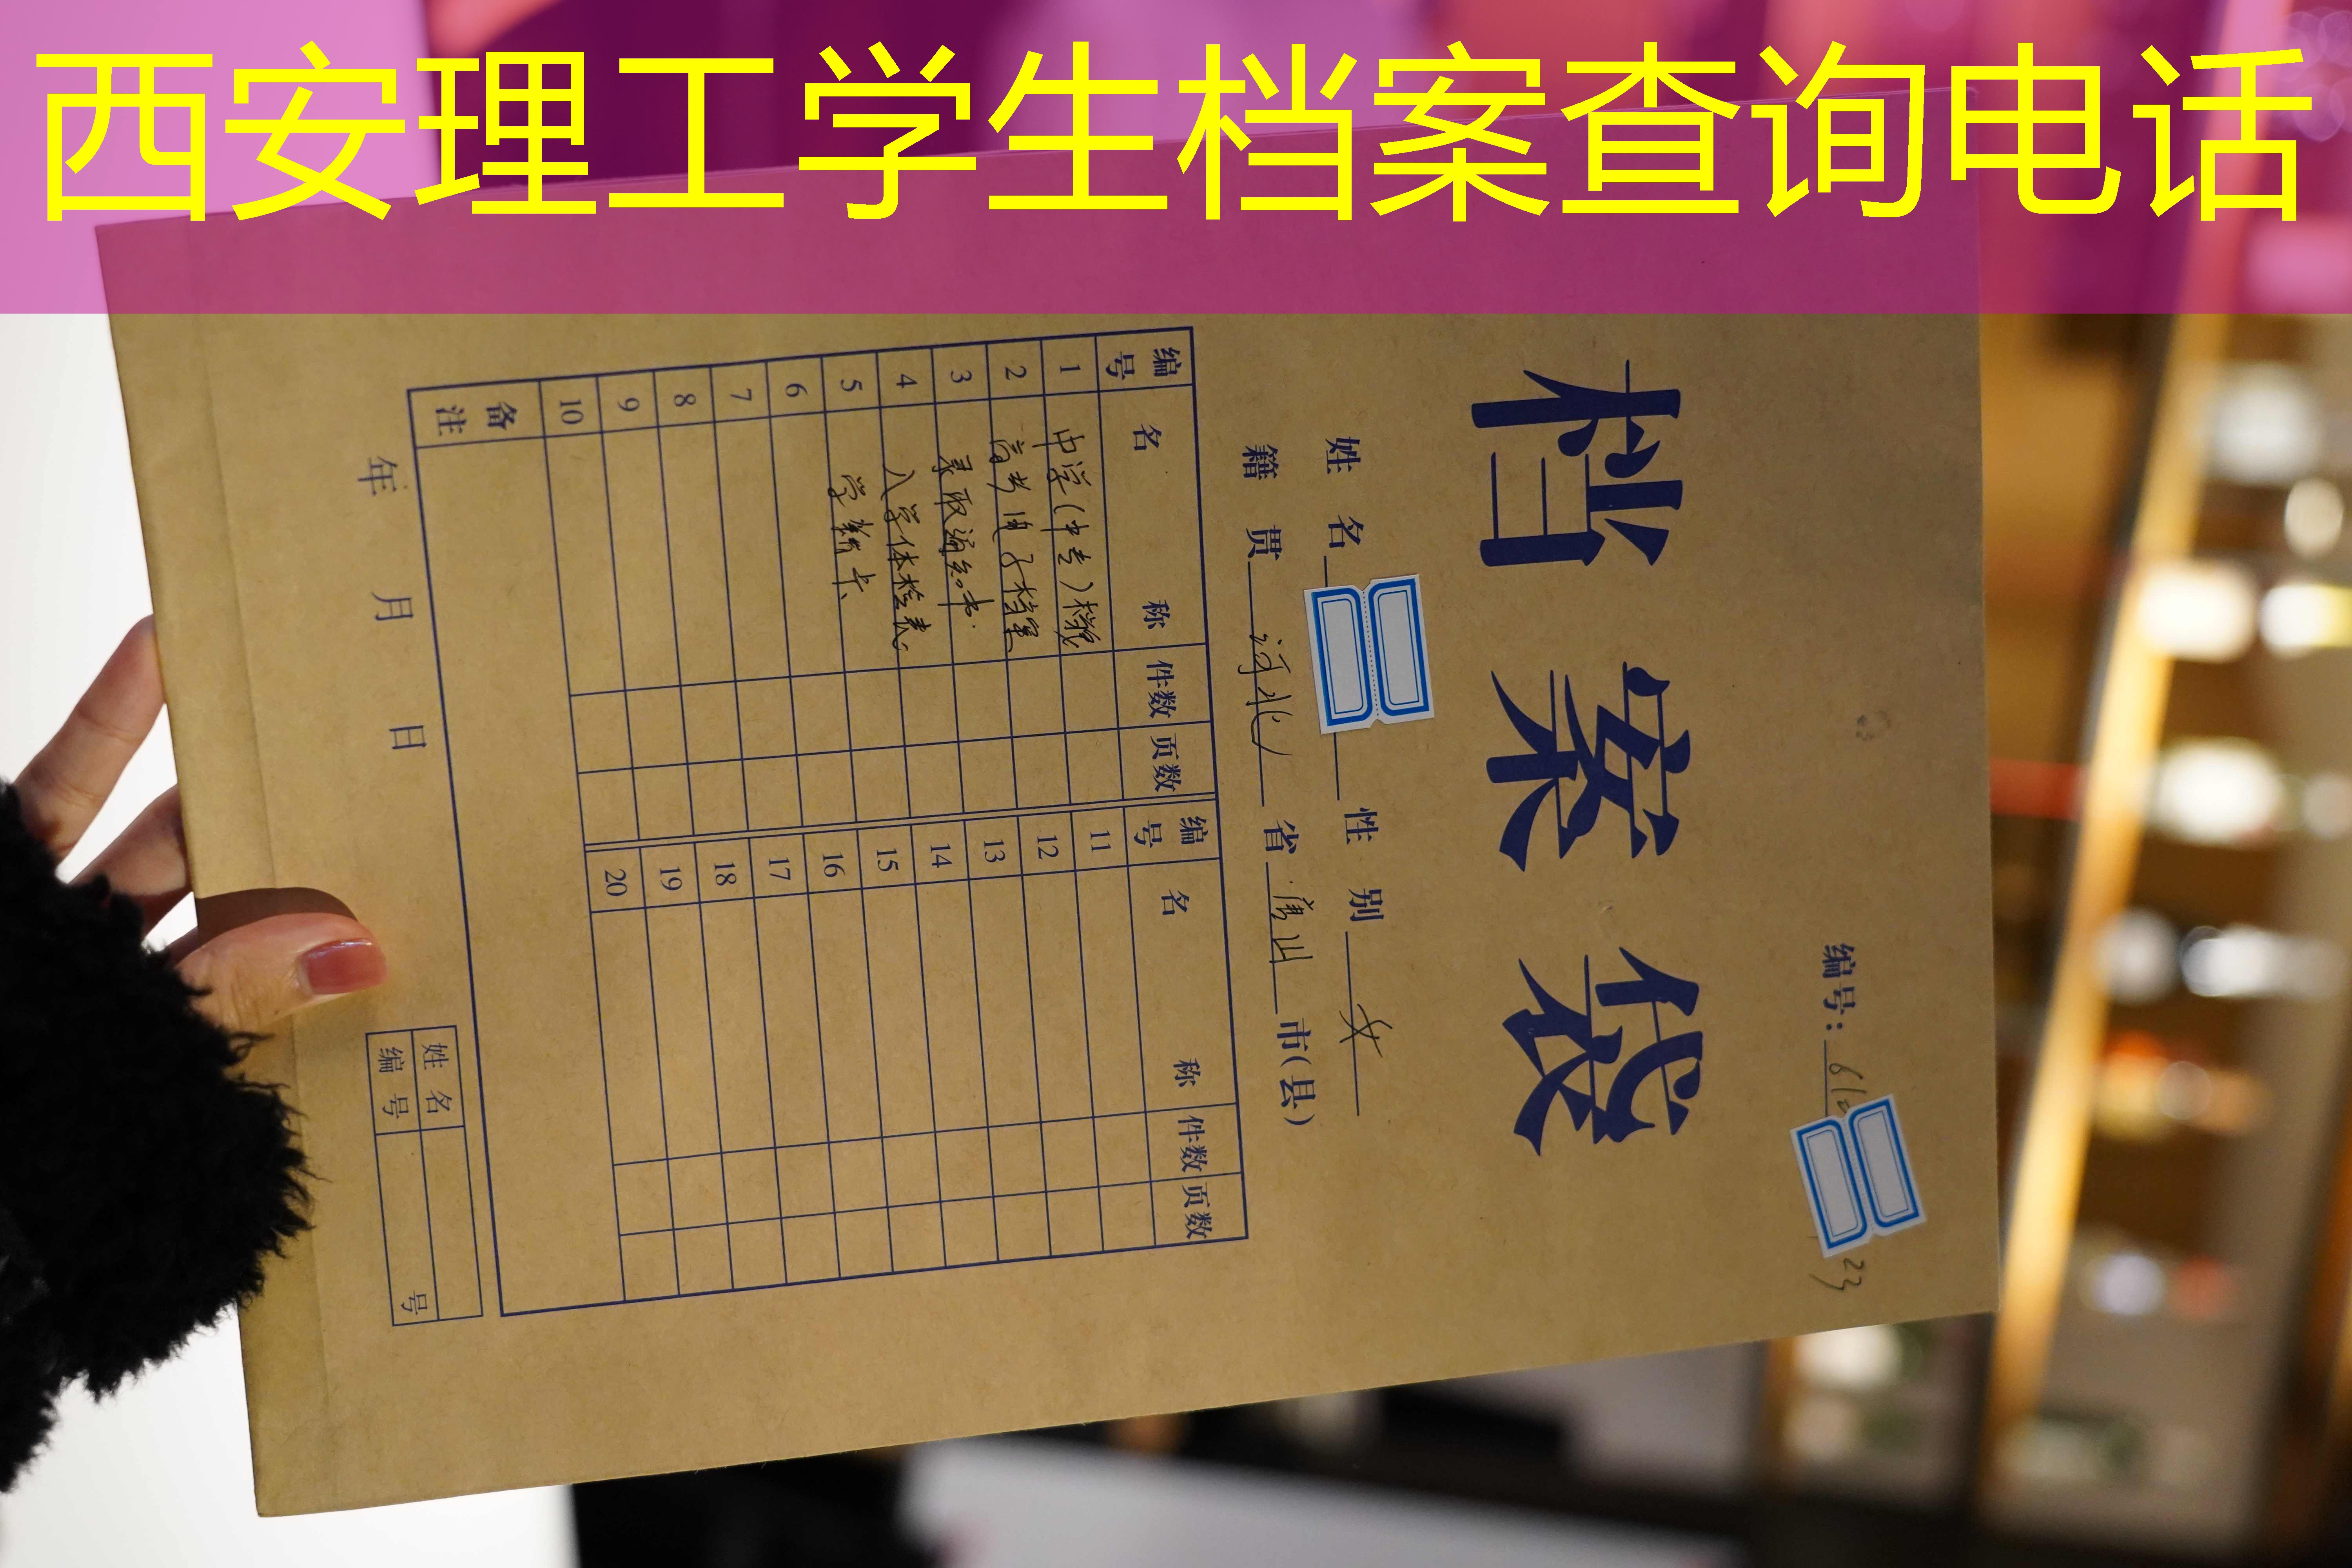 西安理工学生档案查询电话
编号：
23
档案袋
姓名 性别 女
籍贯 河北 省 唐山 市(县)
编号 名称 件数 页数 编号 名称 件数 页数
1 中学(中专)档案 11
2 高考电子档案 12
3 录取通知书 13
4 入学体检表 14
5 学籍卡 15
6 16
7 17
8 18
9 19
10 20
备注
年 月 日
姓名
编号 号